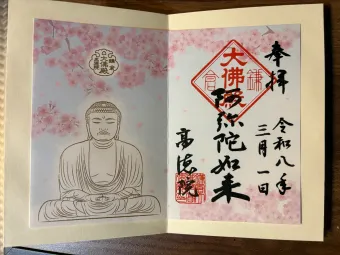 奉拝
令和八年
三月一日
大佛殿
鎌
倉
阿弥陀如来
高徳院
大佛殿